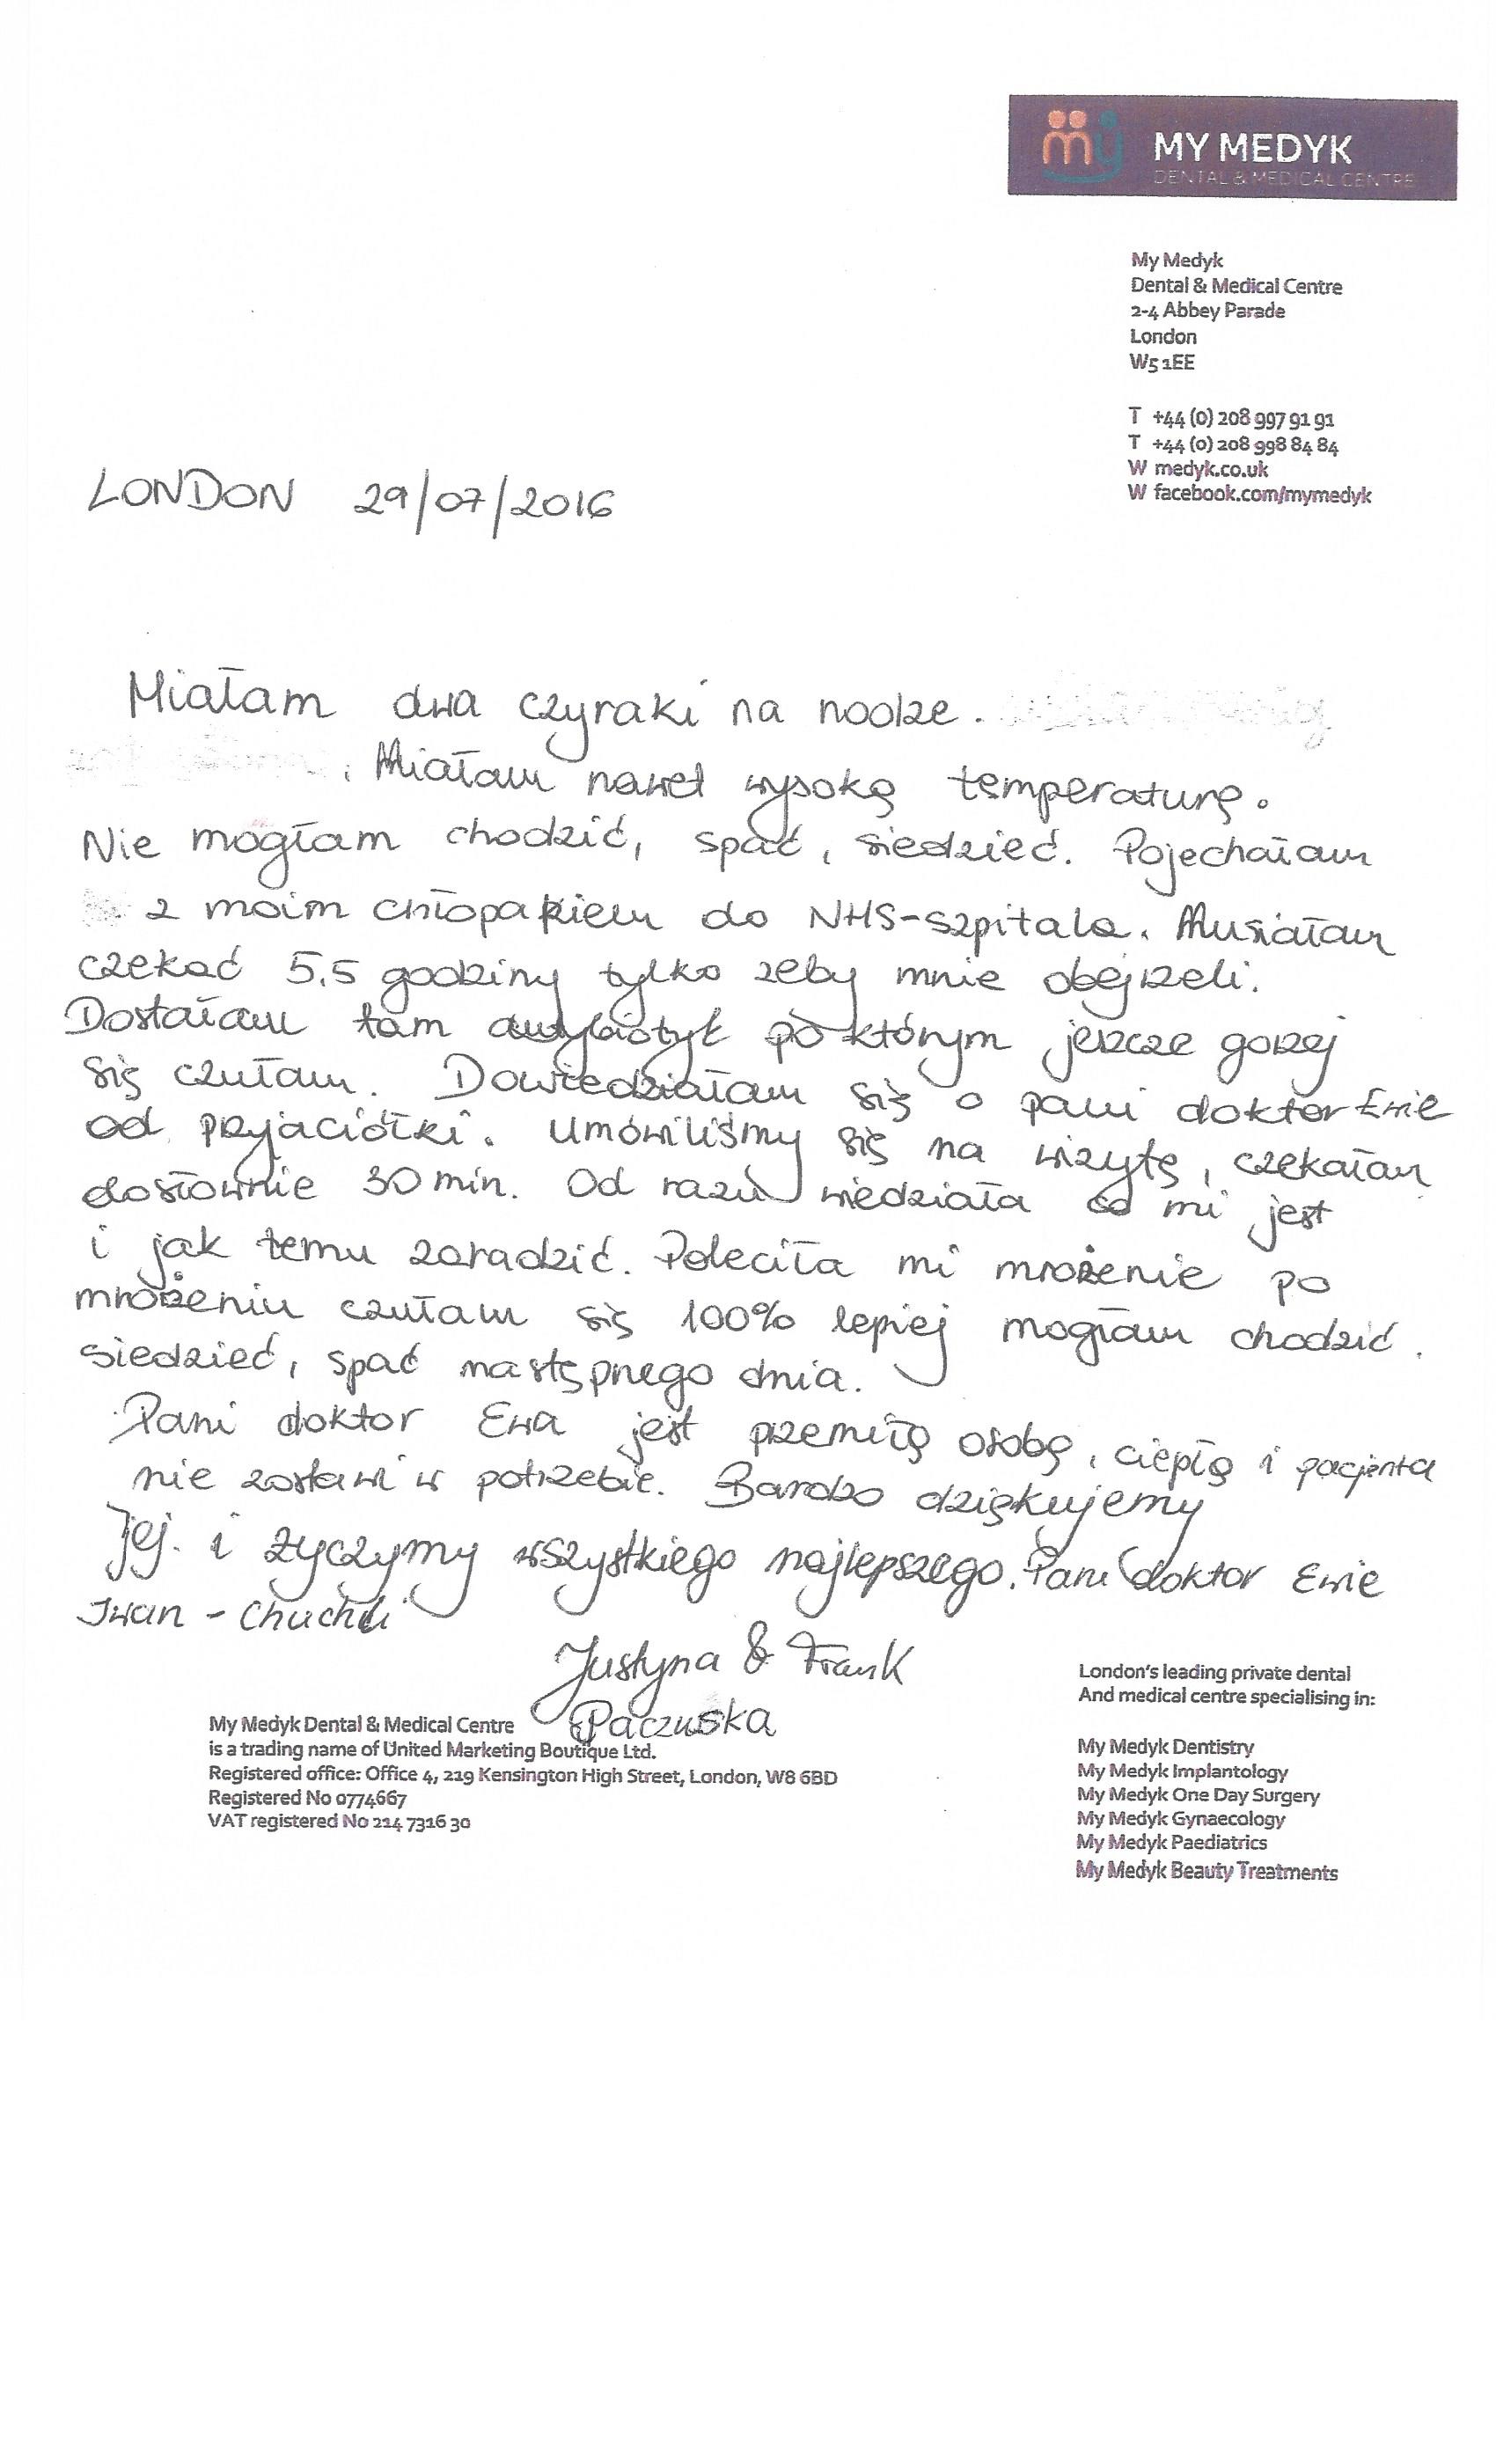 MY MEDYK
DENTAL & MEDICAL CENTRE
My Medyk
Dental & Medical Centre
2-4 Abbey Parade
London
W5 1EE
T +44 (0) 208 997 91 91
T +44 (0) 208 998 84 84
W medyk.co.uk
W facebook.com/mymedyk
LONDON 29/07/2016
Miałam dwa czyraki na nodze.
. Miałam nawet wysoką temperaturę.
Nie mogłam chodzić, spać, siedzieć. Pojechałam
z moim chłopakiem do NHS-szpitala. Musiałam
czekać 5.5 godziny tylko zeby mnie obejrzeli.
Dostałam tam antybiotyk po którym jeszcze gorzej
się czułam. Dowiedziałam się o pani doktor Ewie
od przyjaciółki. Umówiliśmy się na wizytę, czekałam
dosłownie 30 min. Od razu wiedziała co mi jest
i jak temu zaradzić. Poleciła mi mrożenie po
mrożeniu czułam się 100% lepiej mogłam chodzić.
siedzieć, spać następnego dnia.
Pani doktor Ewa jest przemiłą osobą, ciepłą i pacjenta
nie zostawi w potrzebie. Bardzo dziękujemy
Jej. i życzymy wszystkiego najlepszego. Pani doktor Ewie
Iwan - Chuchli
Justyna & Frank
Paczuska
My Medyk Dental & Medical Centre
is a trading name of United Marketing Boutique Ltd.
Registered office: Office 4, 219 Kensington High Street, London, W8 6BD
Registered No 0774667
VAT registered No 214 7316 30
London's leading private dental
And medical centre specialising in:
My Medyk Dentistry
My Medyk Implantology
My Medyk One Day Surgery
My Medyk Gynaecology
My Medyk Paediatrics
My Medyk Beauty Treatments